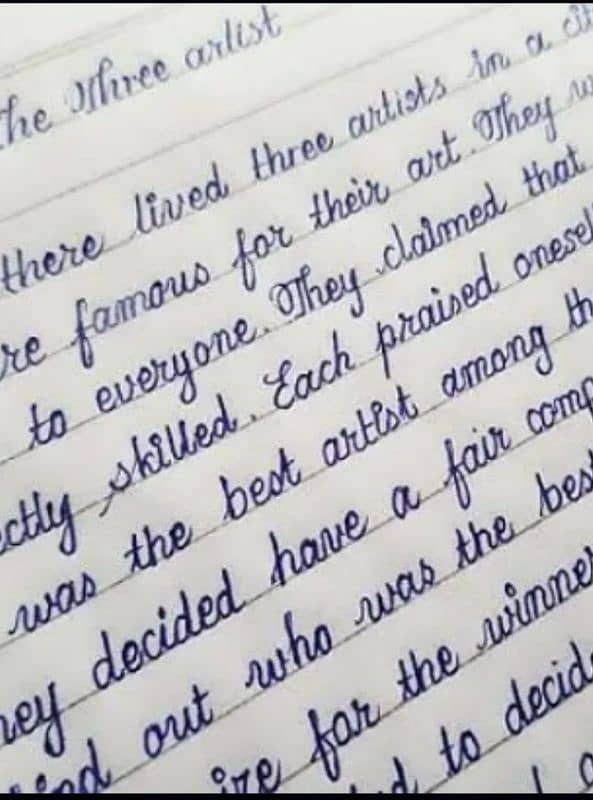 The Three artist
there lived three artists in a
famous for their art. They
to everyone. They claimed that
skilled. Each praised
was the best artist among
decided have a fair
out who was the best
for the winner
to